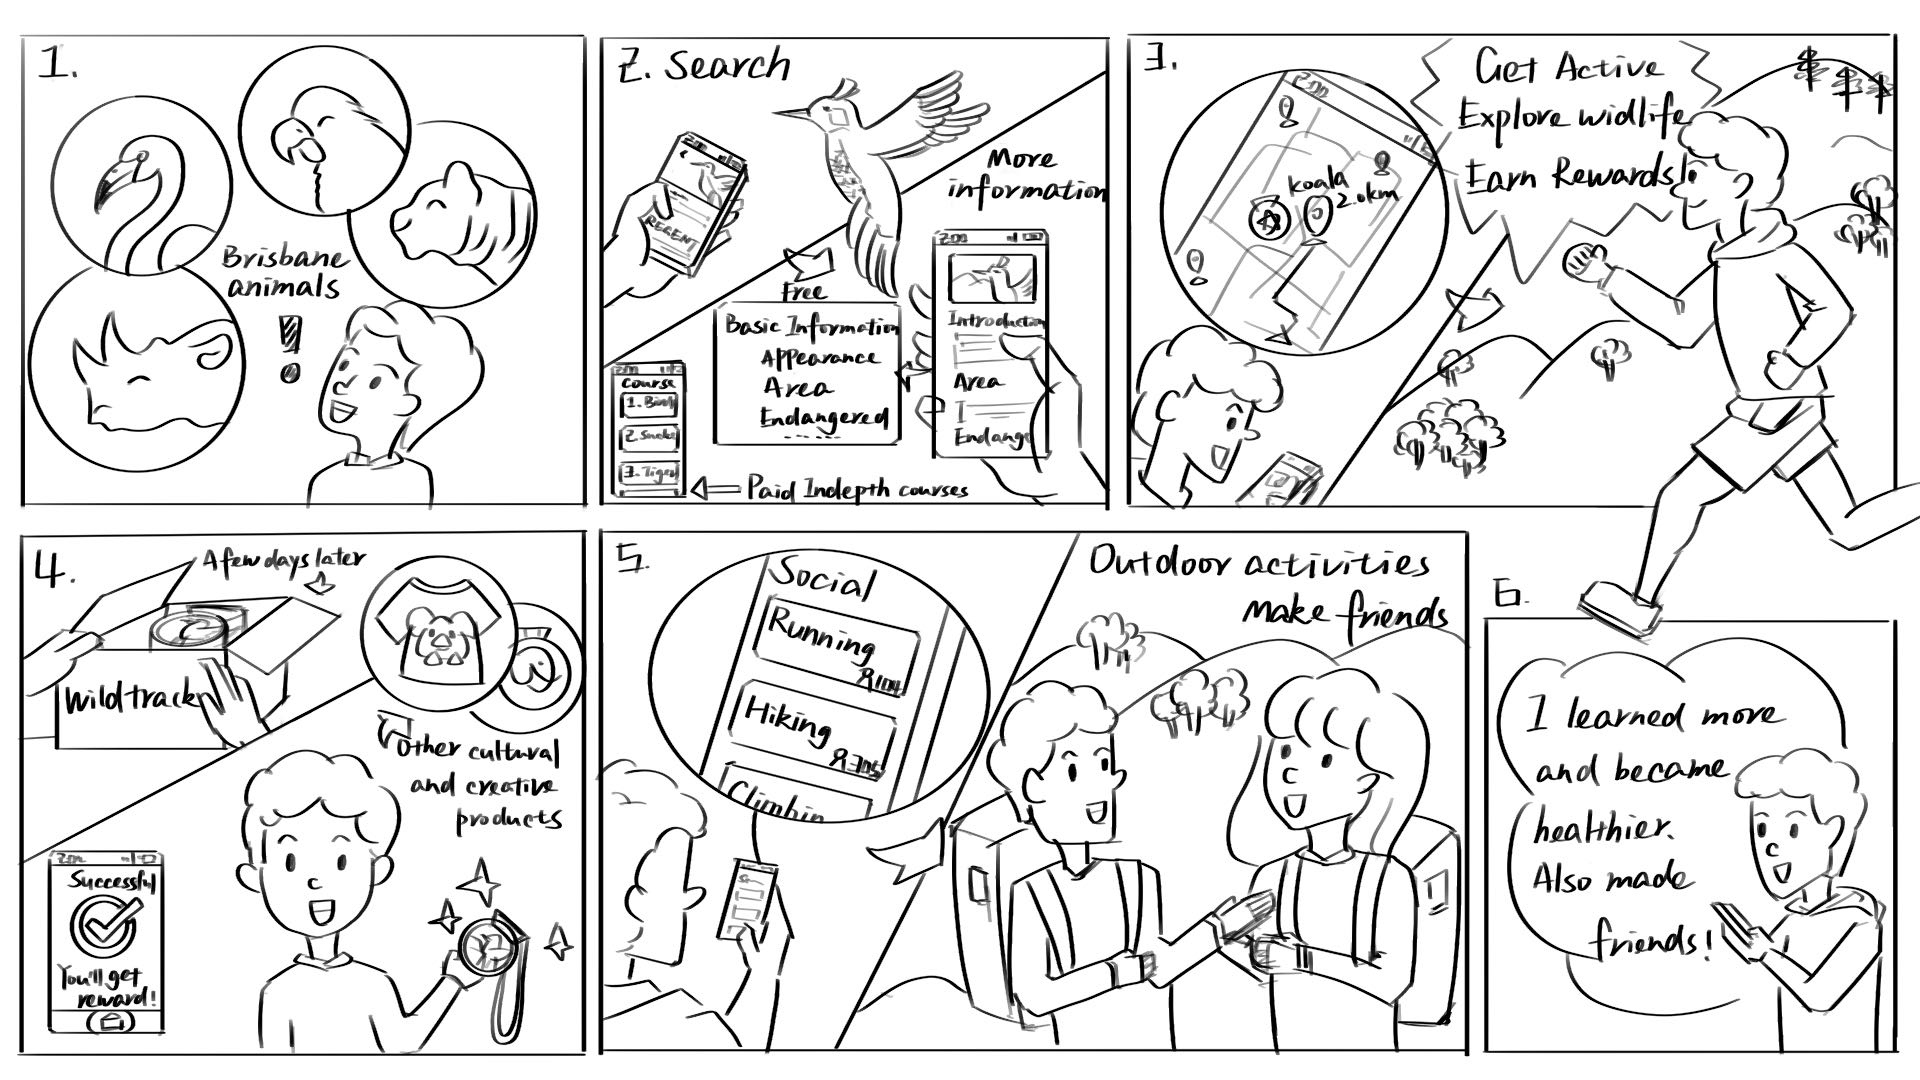 1.
Brisbane
animals
!
2. Search
RECENT
More
information
Free
Basic Information
Appearance
Area
Endangered
......
2:00
Introduction
Area
Endange
Course
1. Bird
2. Snake
3. Tiger
Paid Indepth courses
3.
2:00
koala
2.0km
Get Active
Explore widlife
Earn Rewards!
4.
A few days later
Wildtrack
Other cultural
and creative
products
Successful
You'll get
reward!
5.
Social
Running
Hiking
Climbin
Outdoor activities
make friends
6.
I learned more
and became
healthier.
Also made
friends!